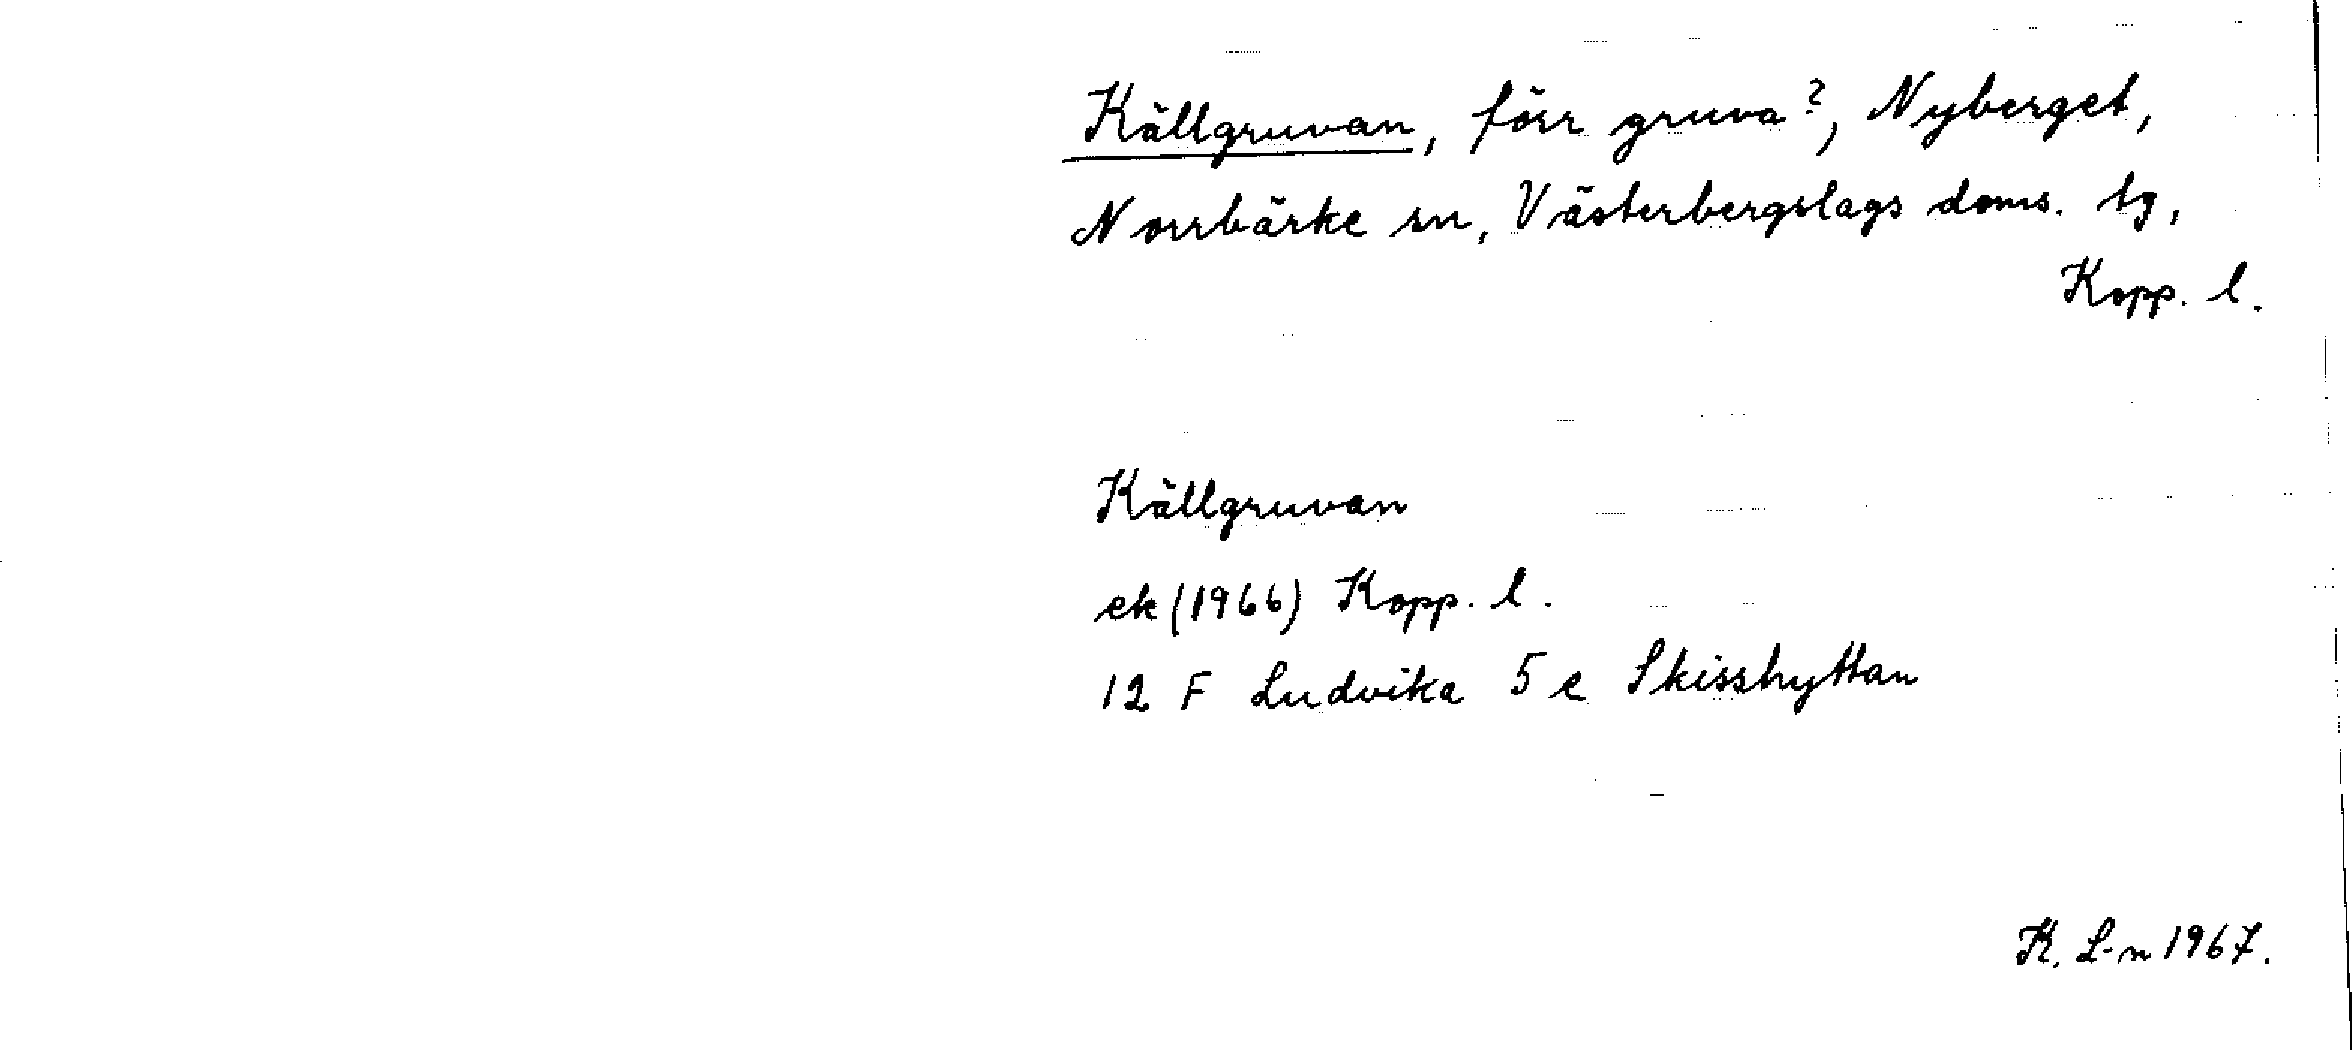 Källgruvan, förr gruva?, Nyberget,
Norrbärke sn, Västerbergslags doms. tg,
Kopp. l.
Källgruvan
ek (1966) Kopp. l.
12 F Ludvika 5 e Skisshyttan
K. L-n 1967.